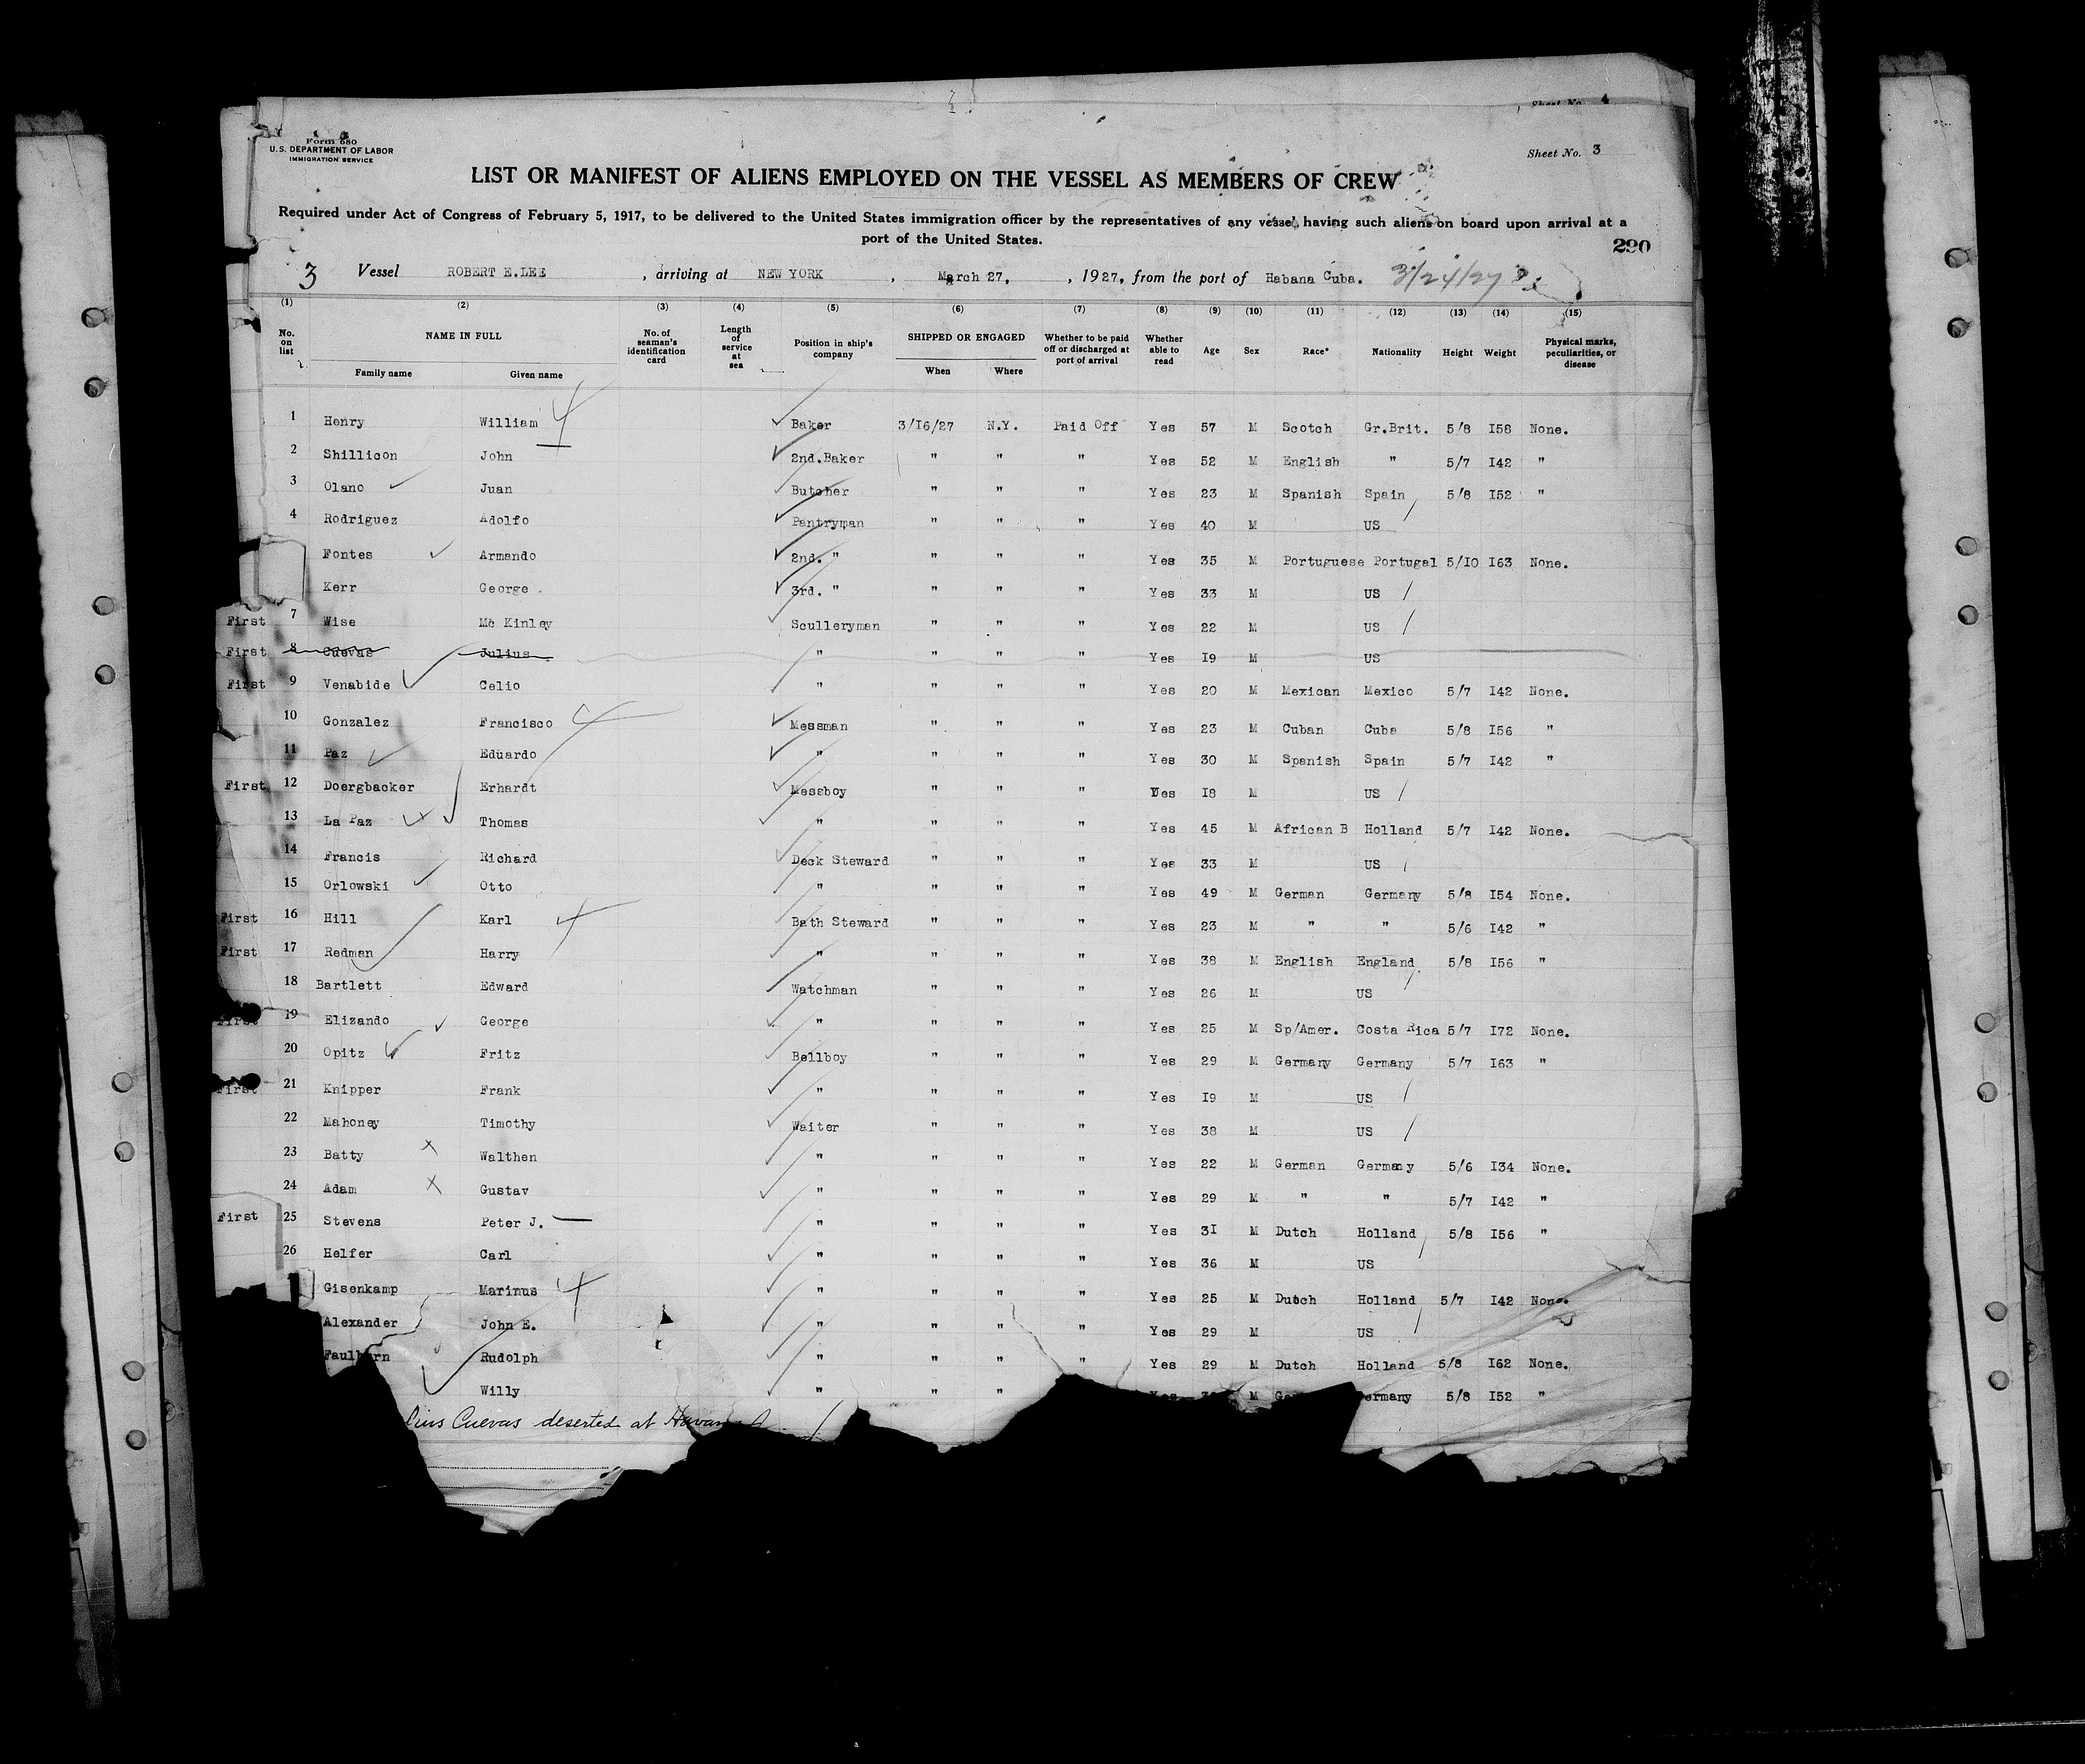 Sheet No. 4
Form 680
U.S. DEPARTMENT OF LABOR
IMMIGRATION SERVICE
Sheet No. 3
LIST OR MANIFEST OF ALIENS EMPLOYED ON THE VESSEL AS MEMBERS OF CREW
Required under Act of Congress of February 5, 1917, to be delivered to the United States immigration officer by the representatives of any vessel having such aliens on board upon arrival at a
port of the United States.
290
3 Vessel ROBERT E.LEE , arriving at NEW YORK , March 27, , 1927, from the port of Habana Cuba. 3/24/27
(1) (2) (3) (4) (5) (6) (7) (8) (9) (10) (11) (12) (13) (14) (15)
No. on list NAME IN FULL Family name Given name No. of seaman's identification card Length of service at sea Position in ship's company SHIPPED OR ENGAGED When Where Whether to be paid off or discharged at port of arrival Whether able to read Age Sex Race* Nationality Height Weight Physical marks, peculiarities, or disease
1 Henry William 4 Baker 3/I6/27 N.Y. Paid Off Yes 57 M Scotch Gr.Brit. 5/8 I58 None.
2 Shillicon John 2nd.Baker " " " Yes 52 M English " 5/7 I42 "
3 Olano Juan Butcher " " " Yes 23 M Spanish Spain 5/8 I52 "
4 Rodriguez Adolfo Pantryman " " " Yes 40 M US
Fontes Armando 2nd. " " " " Yes 35 M Portuguese Portugal 5/IO I63 None.
Kerr George 3rd. " " " " Yes 33 M US
First 7 Wise Mc Kinley Sculleryman " " " Yes 22 M US
First 8 Cuevas Julius " " " " Yes I9 M US
First 9 Venabide Celio " " " " Yes 20 M Mexican Mexico 5/7 I42 None.
10 Gonzalez Francisco 4 Messman " " " Yes 23 M Cuban Cuba 5/8 I56 "
11 Paz Eduardo " " " " Yes 30 M Spanish Spain 5/7 I42 "
First 12 Doergbacker Erhardt Messboy " " " Yes I8 M US
13 La Paz Thomas " " " " Yes 45 M African B Holland 5/7 I42 None.
14 Francis Richard Deck Steward " " " Yes 33 M US
15 Orlowski Otto " " " " Yes 49 M German Germany 5/8 I54 None.
First 16 Hill Karl 4 Bath Steward " " " Yes 23 M " " 5/6 I42 "
First 17 Redman Harry " " " " Yes 38 M English England 5/8 I56 "
18 Bartlett Edward Watchman " " " Yes 26 M US
First 19 Elizando George " " " " Yes 25 M Sp/Amer. Costa Rica 5/7 I72 None.
20 Opitz Fritz Bellboy " " " Yes 29 M Germany Germany 5/7 I63 "
First 21 Knipper Frank " " " " Yes I9 M US
22 Mahoney Timothy Waiter " " " Yes 38 M US
23 Batty X Walthen " " " " Yes 22 M German Germany 5/6 I34 None.
24 Adam X Gustav " " " " Yes 29 M " " 5/7 I42 "
First 25 Stevens Peter J. " " " " Yes 3I M Dutch Holland 5/8 I56 "
26 Helfer Carl " " " " Yes 36 M US
Gisenkamp Marinus 4 " " " " Yes 25 M Dutch Holland 5/7 I42 None.
Alexander John E. " " " " Yes 29 M US
Rudolph " " " " Yes 29 M Dutch Holland 5/8 I62 None.
Willy " " " Yes M 5/8 I52 "
Cuevas deserted at